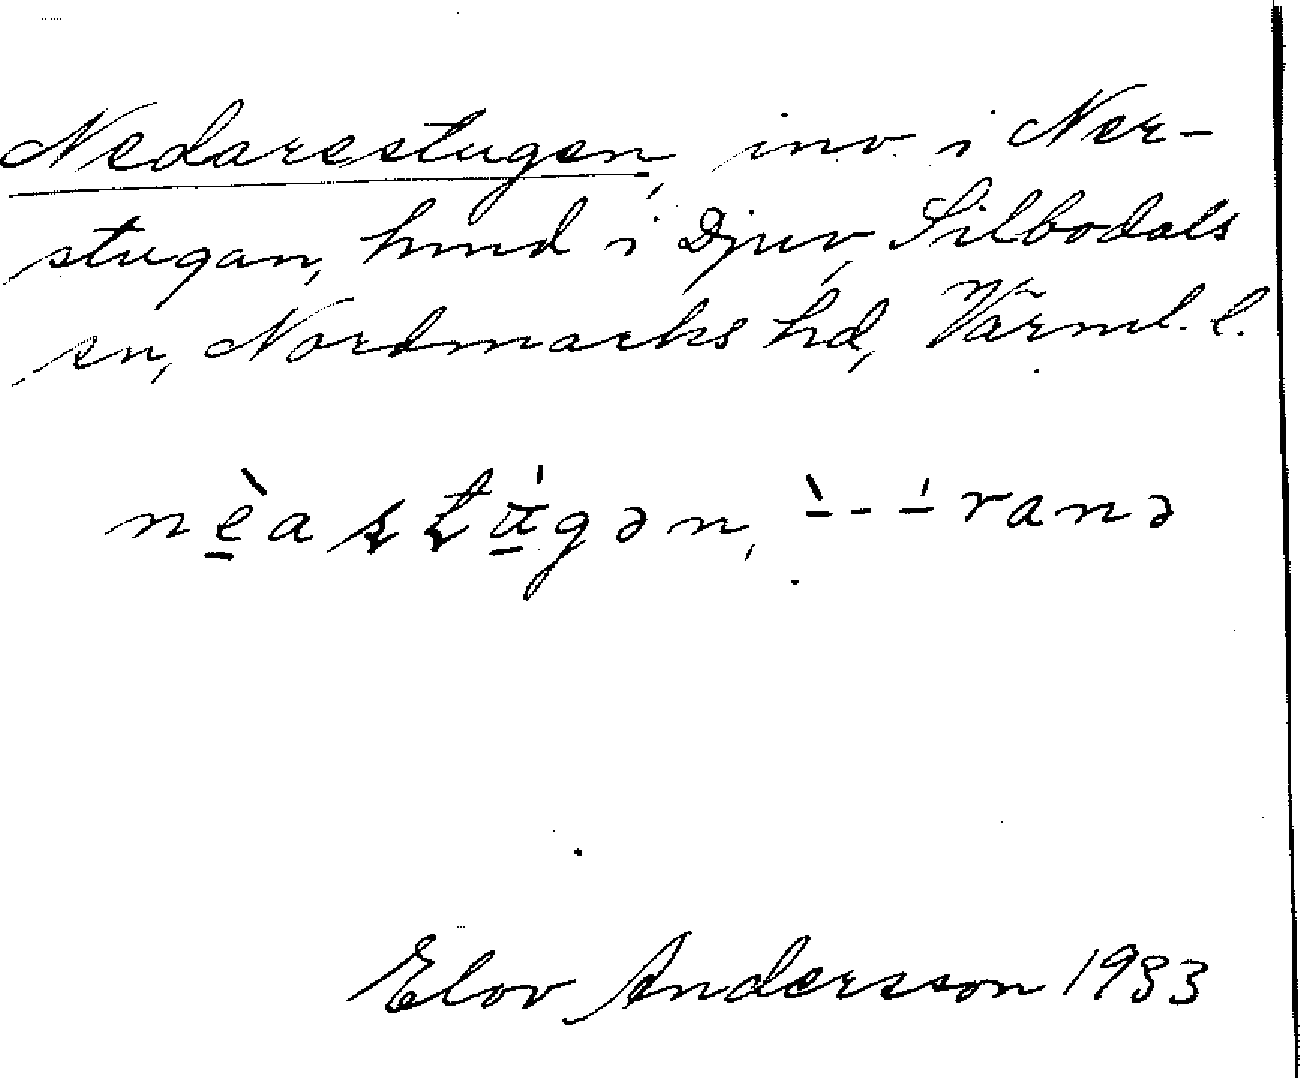 Nedarestugen, inv. i Ner-
stugan, hmd i Djuv, Silbodals
sn, Nordmarks hd, Värml. l.
nè̱astú̱gən, ̱̀--̱́ranə
Elov Andersson 1933